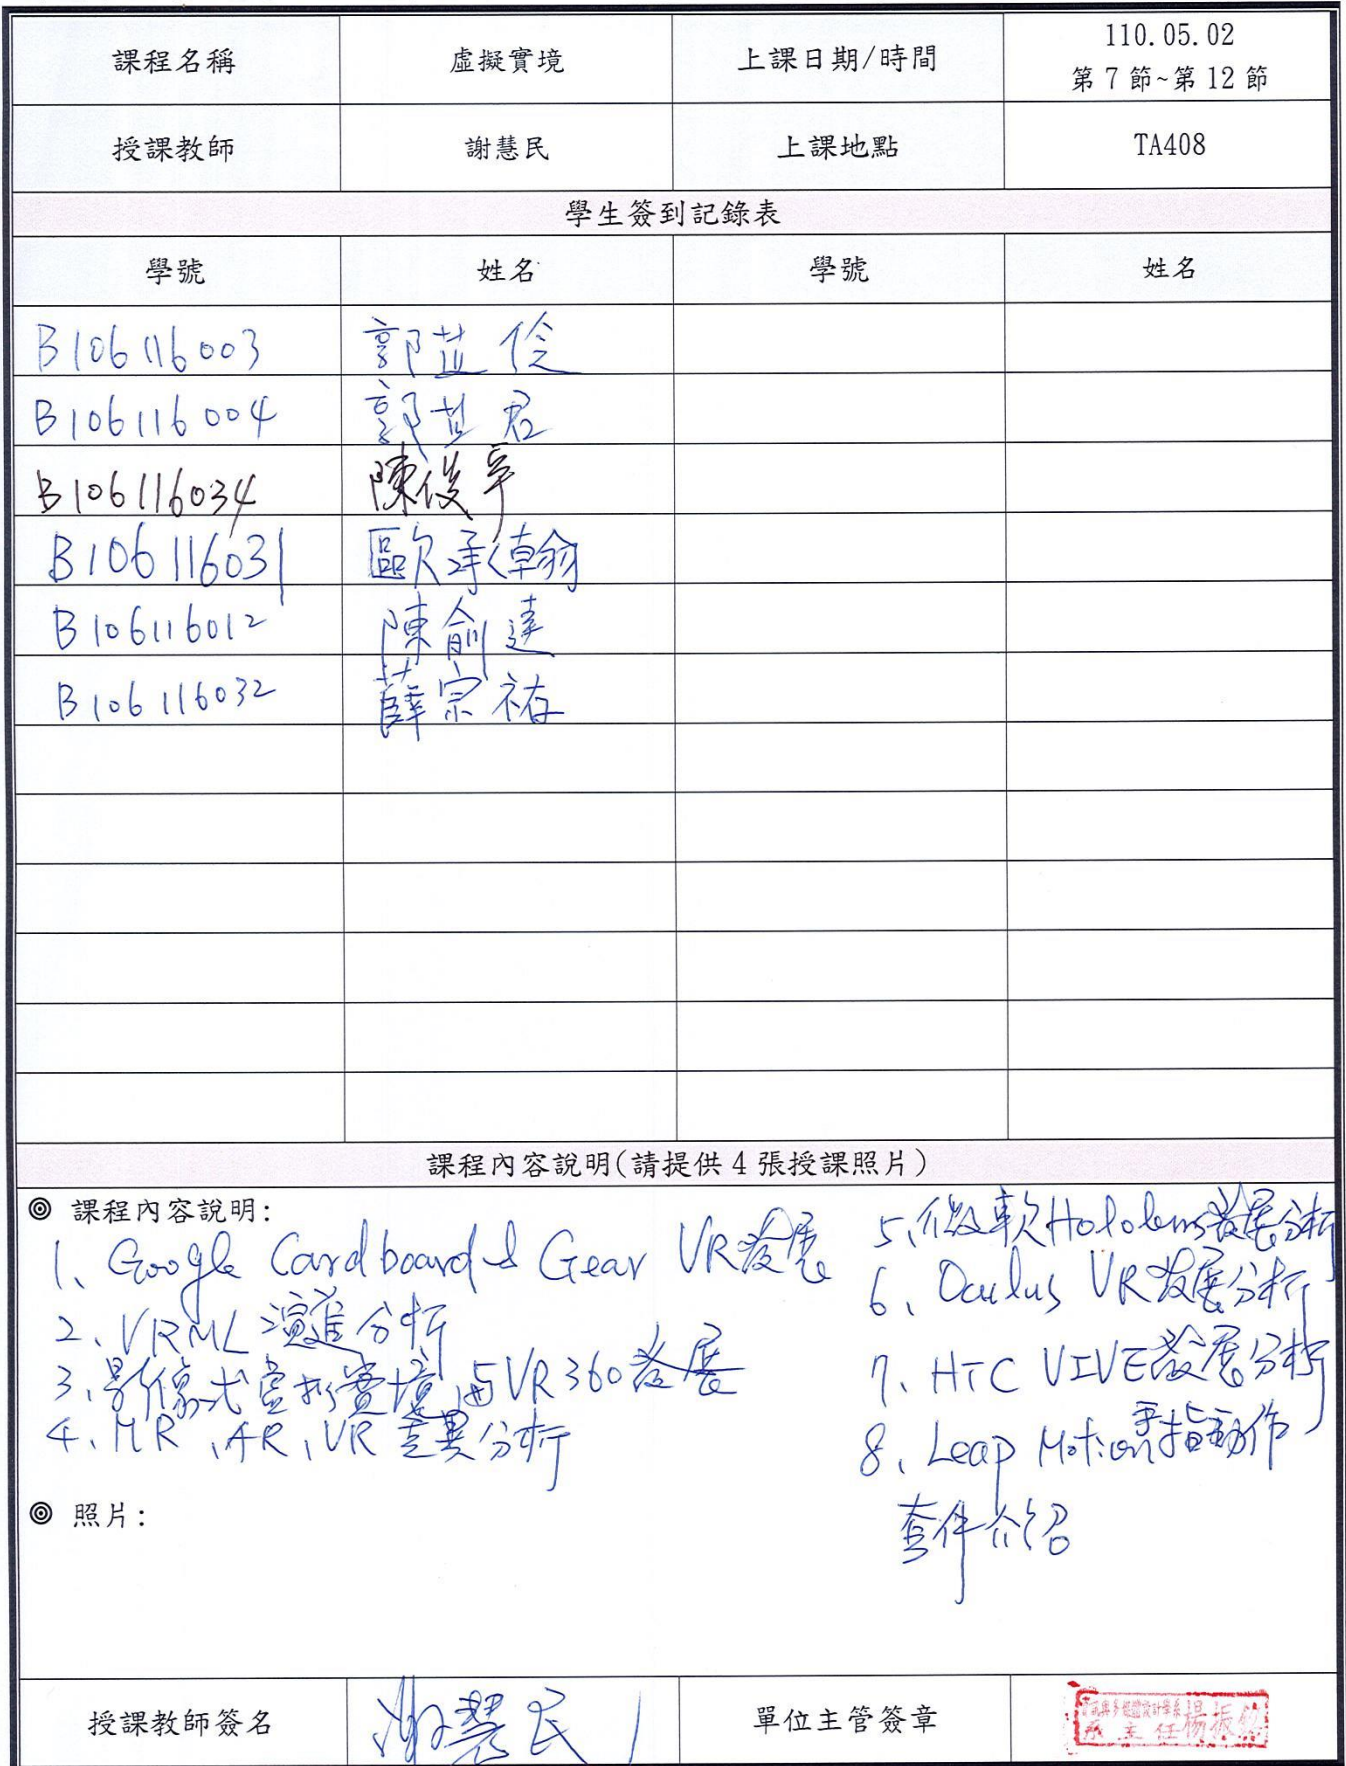 課程名稱 虛擬實境 上課日期/時間 110.05.02
第 7 節~第 12 節
授課教師 謝慧民 上課地點 TA408
學生簽到記錄表
學號 姓名 學號 姓名
B106116003 郭芷伶
B106116004 郭芷君
B106116034 陳俊宇
B106116031 歐承翰
B106116012 陳俞達
B106116032 薛宗祐
課程內容說明(請提供 4 張授課照片)
◎ 課程內容說明:
1、Google Cardboard & Gear VR發展
2、VRML 演進分析
3、影像式虛擬實境與VR360發展
4、MR、AR、VR 差異分析
5、微軟Hololens發展分析
6、Oculus VR發展分析
7、HTC VIVE發展分析
8、Leap Motion手指動作
套件介紹
◎ 照片:
授課教師簽名 謝慧民 單位主管簽章 資訊與多媒體設計學系
系主任 楊振